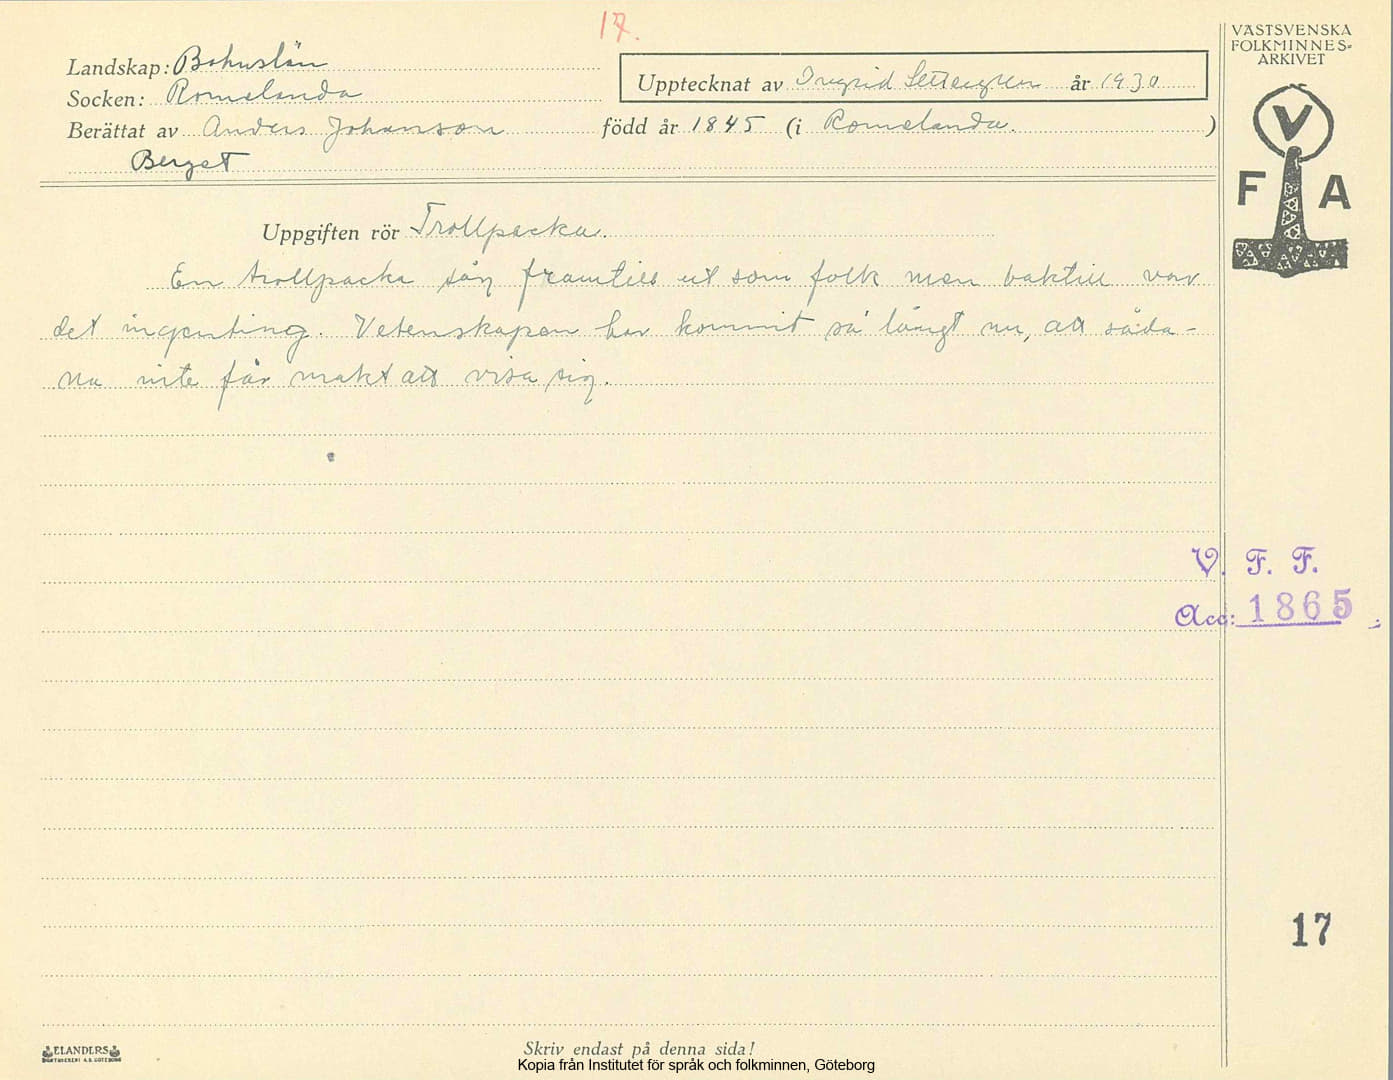 17.
VÄSTSVENSKA
FOLKMINNES-
ARKIVET
Landskap: Bohuslän
Upptecknat av Ingrid Settergren år 1930
Socken: Romelanda
Berättat av Anders Johanson född år 1845 (i Romelanda. )
Berget
V
F A
Uppgiften rör Trollpacka.
En trollpacka såg framtill ut som folk men baktill var
det ingenting. Vetenskapen har kommit så långt nu, att såda-
na inte får makt att visa sig.
V. F. F.
Acc: 1865
17
ELANDERS
Skriv endast på denna sida!
Kopia från Institutet för språk och folkminnen, Göteborg